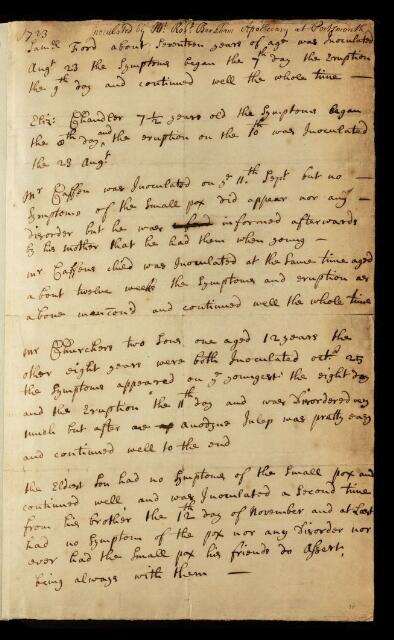 1723 Inoculated by Mr Robt Barham Apothecary at Portsmouth
Samll Ford about Seventeen years of age was Inoculated
Augt 23 the Symptoms began the 7th day the Eruption
the 9th day and continued well the whole time —
Eliz: Chandler 7½ years old the Symptoms began
the 8th day and the eruption on the 10th was Inoculated
the 28 Augt
Mr Caffen was Inoculated on ye 11th Sept but no —
Symptoms of the small pox did appear nor any —
disorder but he was informed afterwards
by his mother that he had them when young —
mr Caffens child was Inoculated at the same time aged
about twelve weeks the Symptoms and eruption as
above mention'd and continued well the whole time
Mr Churchers two Sons one aged 12 years the
other eight years were both Inoculated octr 25
the Symptoms appeared on ye youngest the eight day
and the Eruption the 11th day and was Disordered very
much but after an anodyne Julep was pretty easy
and continued well to the end
the Eldest Son had no Symptoms of the Small pox and
continued well and was Inoculated a Second time
from his brother the 12th day of November and at Last
had no Symptom of the pox nor any Disorder nor
ever had the Small pox his friends do Assert,
being always with them —